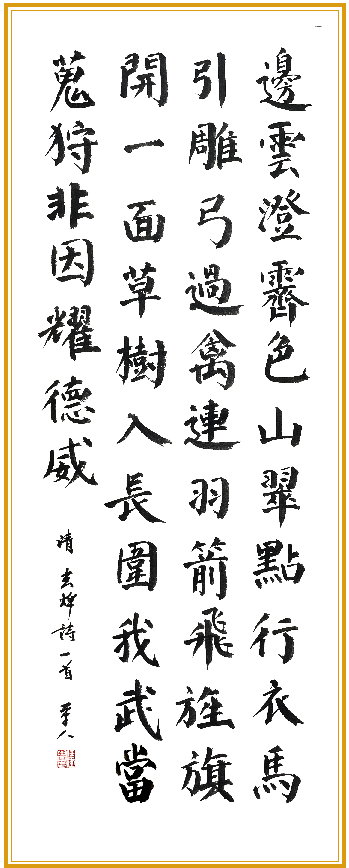 邊雲澄霽色山翠點行衣馬
引雕弓過禽連羽箭飛旌旗
開一面草樹入長圍我武當
蒐狩非因耀德威
清 玄燁詩一首